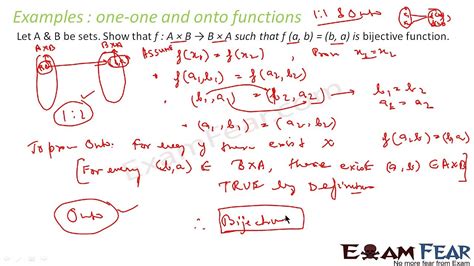 Examples : one-one and onto functions
1:1 & Onto
Let A & B be sets. Show that f : A × B → B × A such that f (a, b) = (b, a) is bijective function.
A×B B×A
Assume f(x₁) = f(x₂), Prove x₁=x₂
f(a₁,b₁) = f(a₂,b₂)
(b₁,a₁) = (b₂,a₂) b₁=b₂
a₁=a₂
1:1
= (a₁,b₁) = (a₂,b₂)
To prove Onto: For every y there exist x f(a,b)=(b,a)
[For every (b,a) ∈ B×A, there exist (a,b) ∈ A×B]
TRUE by Definition
Onto
∴ Bijective
ExamFear.com
EXAM FEAR
No more fear from Exam